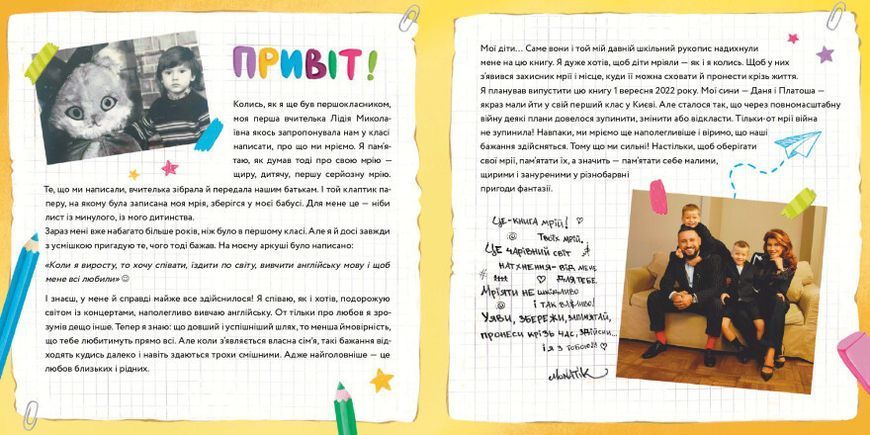 ПРИВІТ!
Колись, як я ще був першокласником,
моя перша вчителька Лідія Микола-
ївна якось запропонувала нам у класі
написати, про що ми мріємо. Я пам’я-
таю, як думав тоді про свою мрію —
щиру, дитячу, першу серйозну мрію.
Те, що ми написали, вчителька зібрала й передала нашим батькам. І той клаптик па-
перу, на якому була записана моя мрія, зберігся у моєї бабусі. Для мене це — ніби
лист із минулого, із мого дитинства.
Зараз мені вже набагато більше років, ніж було в першому класі. Але я й досі завжди
з усмішкою пригадую те, чого тоді бажав. На моєму аркуші було написано:
«Коли я виросту, то хочу співати, їздити по світу, вивчити англійську мову і щоб
мене всі любили» ☺
І знаєш, у мене й справді майже все здійснилося! Я співаю, як і хотів, подорожую
світом із концертами, наполегливо вивчаю англійську. От тільки про любов я зро-
зумів дещо інше. Тепер я знаю: що довший і успішніший шлях, то менша ймовірність,
що тебе любитимуть прямо всі. Але коли з’являється власна сім’я, такі бажання від-
ходять кудись далеко і навіть здаються трохи смішними. Адже найголовніше — це
любов близьких і рідних.
Мої діти... Саме вони і той мій давній шкільний рукопис надихнули
мене на цю книгу. Я дуже хотів, щоб діти мріяли — як і я колись. Щоб у них
з’явився захисник мрії і місце, куди її можна сховати й пронести крізь життя.
Я планував випустити цю книгу 1 вересня 2022 року. Мої сини — Даня і Платоша —
якраз мали йти у свій перший клас у Києві. Але сталося так, що через повномасштабну
війну деякі плани довелося зупинити, змінити або відкласти. Тільки-от мрії війна
не зупинила! Навпаки, ми мріємо ще наполегливіше і віримо, що наші
бажання здійсняться. Тому що ми сильні! Настільки, щоб оберігати
свої мрії, пам’ятати їх, а значить — пам’ятати себе малими,
щирими і зануреними у різнобарвні
пригоди фантазії.
ЦЕ-КНИГА МРІЙ!
ТВОЇХ МРІЙ.
ЦЕ ЧАРІВНИЙ СВІТ
НАТХНЕННЯ-ВІД МЕНЕ
ДЛЯ ТЕБЕ.
МРІЯТИ НЕ ШКІДЛИВО
І ТАК ВАЖЛИВО!
УЯВИ, ЗБЕРЕЖИ, ЗАПАМ'ЯТАЙ,
ПРОНЕСИ КРІЗЬ ЧАС, ЗДІЙСНИ...
І Я З ТОБОЮ!!!
MONATIK